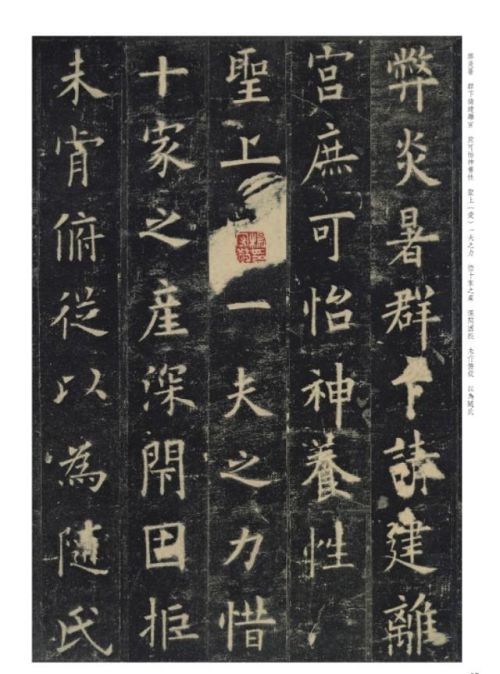 弊炎暑 群下請建離宮 庶可怡神養性 聖上（愛）一夫之力 惜十家之產 深閉固拒 未肯俯從 以為隨氏
弊炎暑群下請建離
宮庶可怡神養性
聖上一夫之力惜
十家之產深閇固拒
未肯俯從以為隨氏